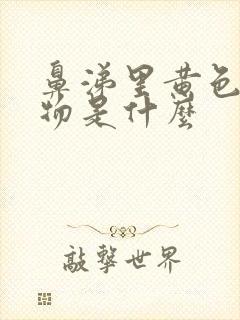 鼻涕里黄色
物是什麽
敲擊世界